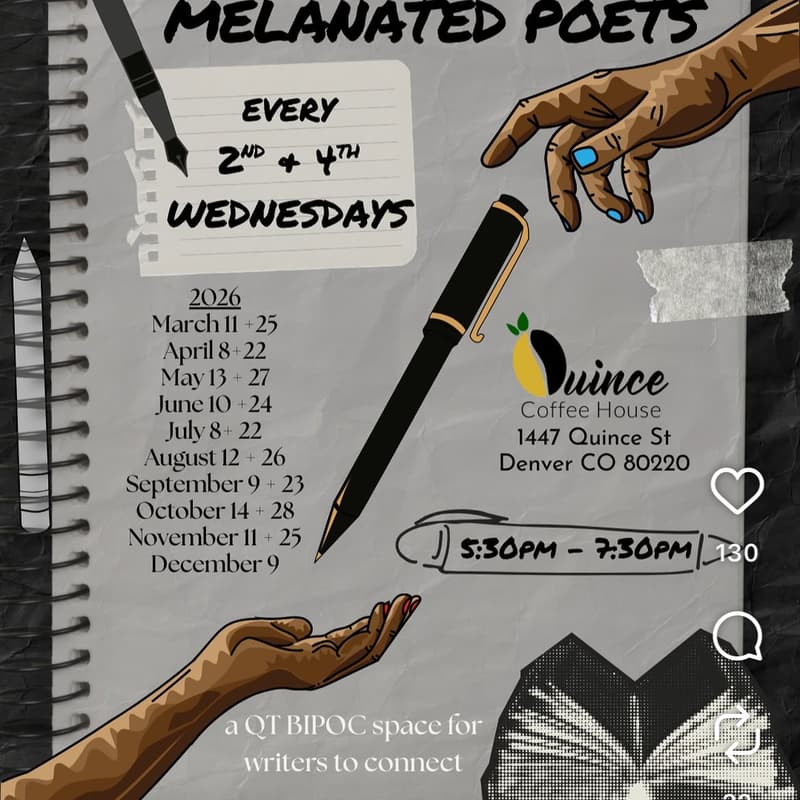 MELANATED POETS
EVERY
2ND + 4TH
WEDNESDAYS
2026
March 11 +25
April 8+22
May 13 + 27
June 10 +24
July 8+ 22
August 12 + 26
September 9 + 23
October 14 + 28
November 11 + 25
December 9
Quince
Coffee House
1447 Quince St
Denver CO 80220
5:30PM - 7:30PM
130
a QT BIPOC space for
writers to connect